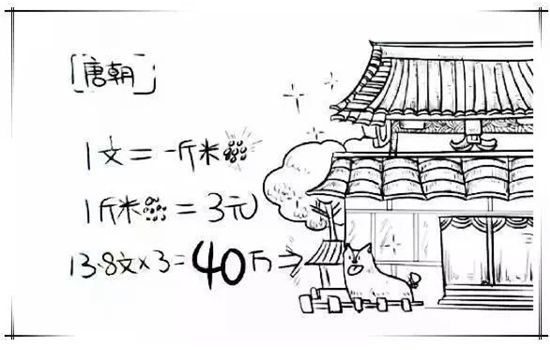 [唐朝]
1文=一斤米
1斤米=3元
13.8文×3=40万⇒